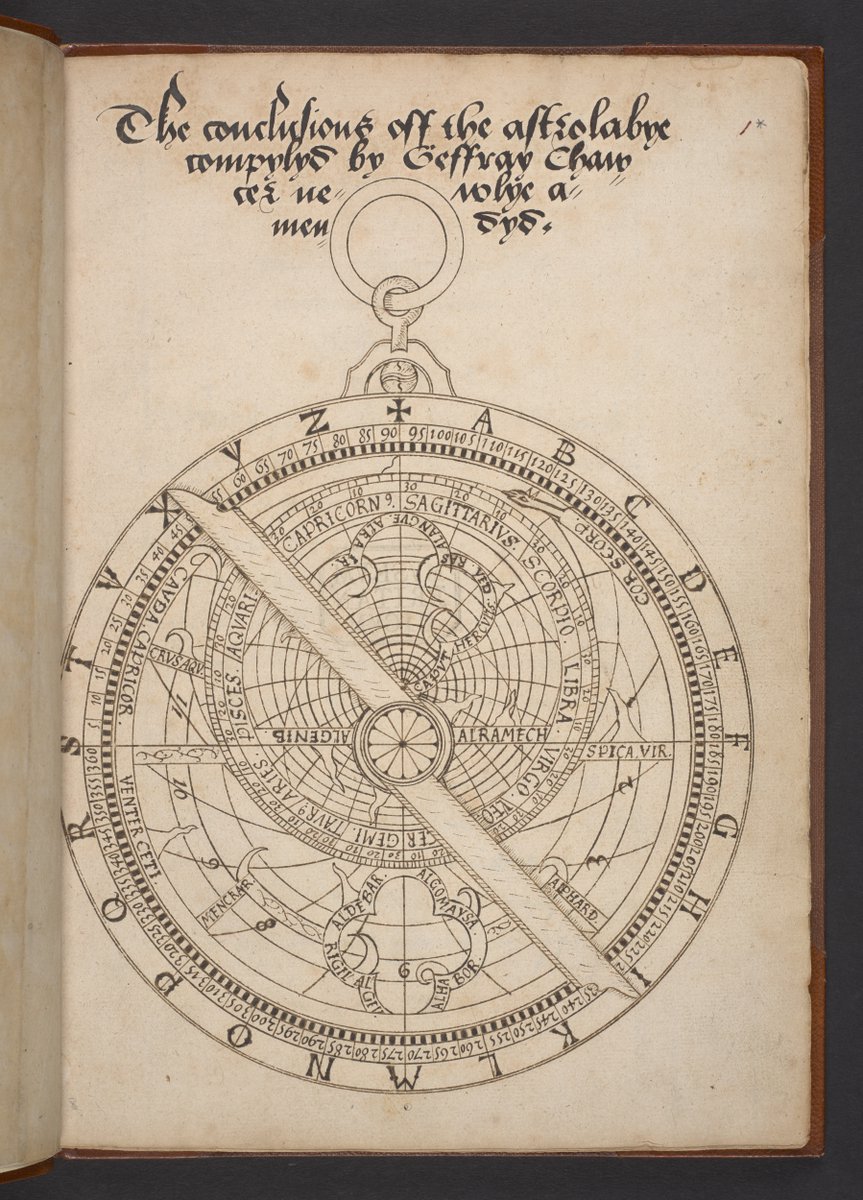 The conclusions off the astrolabye
compylyd by Geffray Chaw
cer ne= wlye a=
men= dyd.
1*
A B C D E F G H I K L M N O P Q R S T V X Y Z
5 10 15 20 25 30 35 40 45
55 60 65 70 75 80 85 90 95 100 105 110 115 120 125 130 135 140 145 150 155 160 165 170 175 180 185 190 195 200 205 210 215 220 225
240 245 250 255 260 265 270 275 280 285 290 295 300 305 310 315 320 325 330 335 340 345 350 355 360
CAPRICORN9.
SAGITTARIVS.
SCORPIO
LIBRA
VIRGO.
LEO
GEMI.
TAVR9.
ARIES.
PISCES.
AQVARI.
ALANGVE
ALRA
RAS
CAPVT HERCVLS
COR SCORP.
CAVDA CAPRICOR.
CRVS AQV.
ALGENIB
ALRAMECH
SPICA. VIR.
VENTER CETI.
MENCKAR.
ALPHARD.
ALDEBAR.
ALGOMAYSA
RIGIL ALGE
ALHABOR.
1
2
3
6
8
9